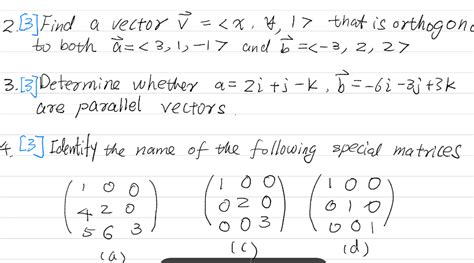 2. [3] Find a vector v⃗ = <x, y, 1> that is orthogona
to both a⃗ = <3, 1, -1> and b⃗ = <-3, 2, 2>
3. [3] Determine whether a = 2i + j - k, b⃗ = -6i - 3j + 3k
are parallel vectors.
4. [3] Identify the name of the following special matrices
1 0 0 1 0 0 1 0 0
4 2 0 0 2 0 0 1 0
5 6 3 0 0 3 0 0 1
(a) (c) (d)